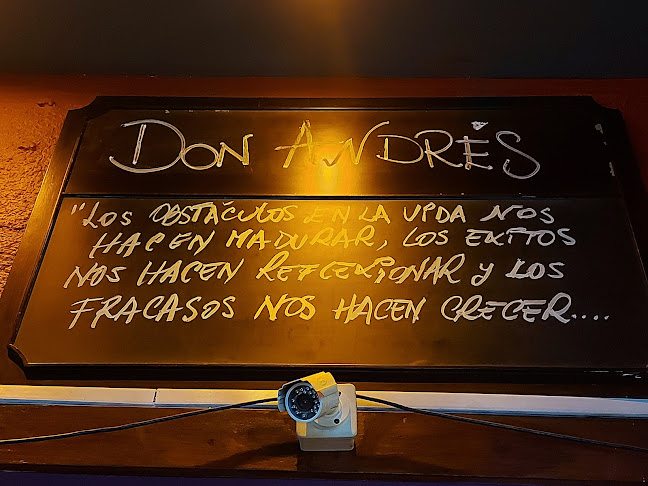 DON ANDRÉS
"LOS OBSTÁCULOS EN LA VIDA NOS
HACEN MADURAR, LOS EXITOS
NOS HACEN REFLEXIONAR Y LOS
FRACASOS NOS HACEN CRECER....